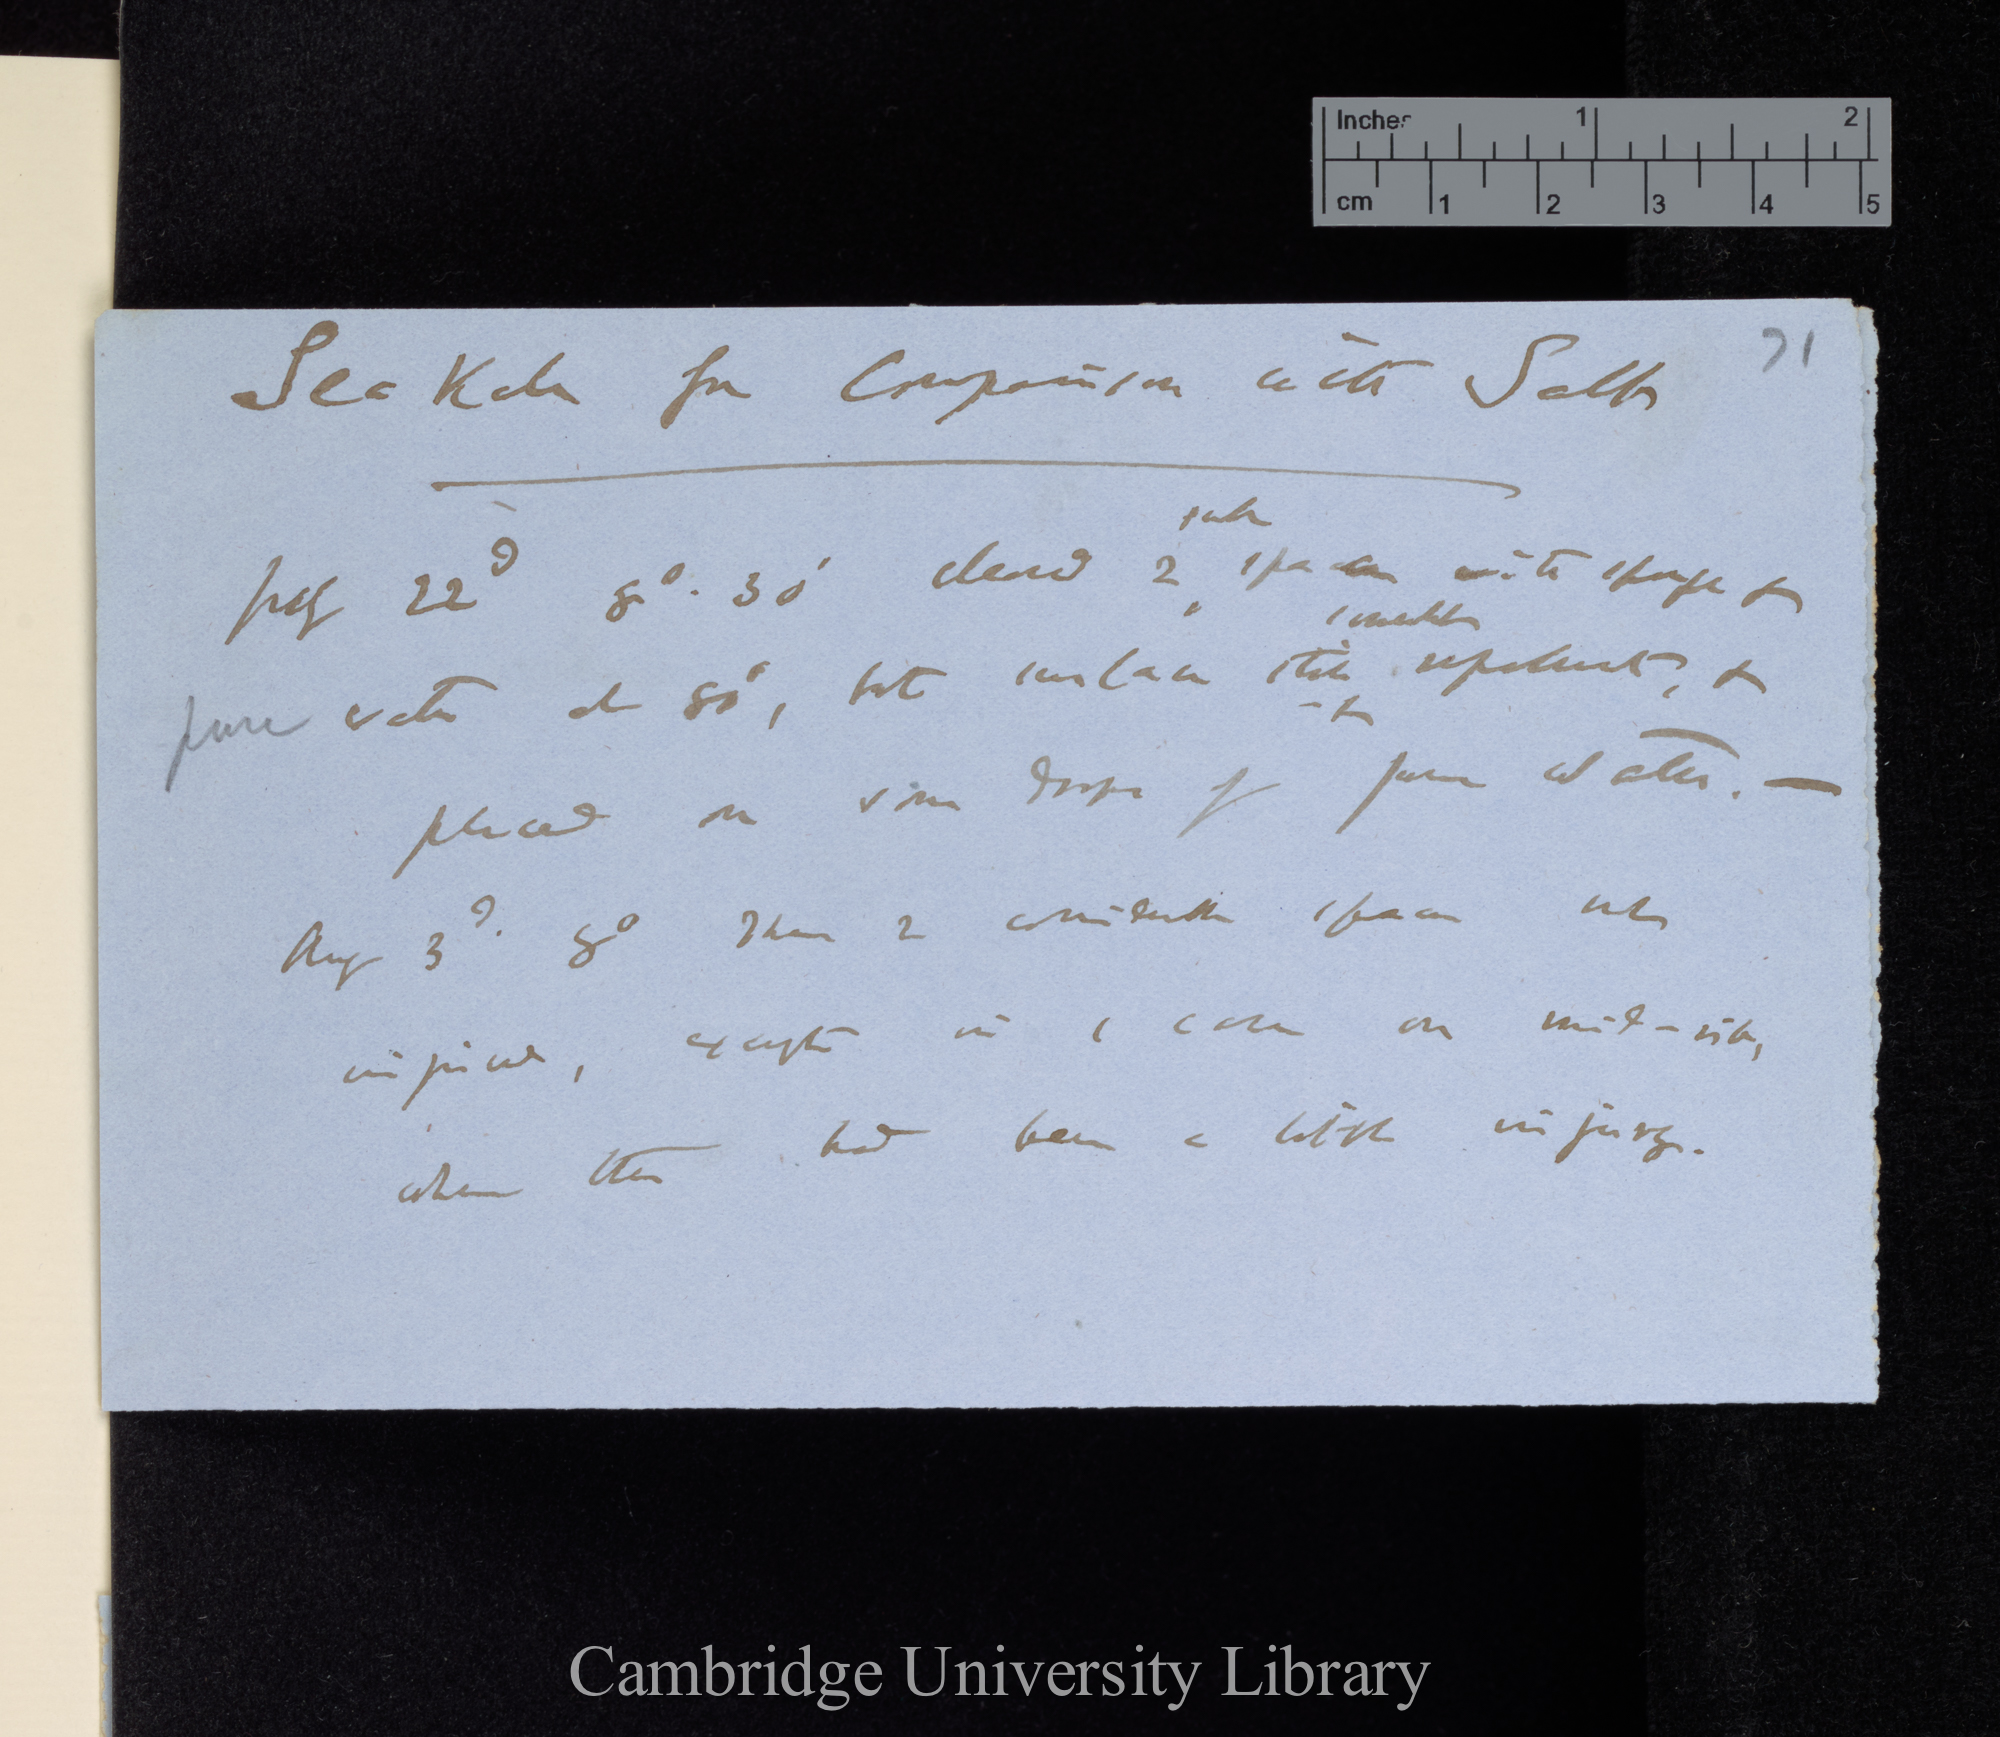 Inches 1 2
cm 1 2 3 4 5
71
Sea Kale for Comparison with Salts
July 22d 8o. 30' cleaned 2 spaces with sponge &
pure water at 80o, but surface still repellent, &
smeared
placed on some drops of pure water. —
Aug 3d. 8o These 2 considerable spaces not
injured, except in 1 case on mid-rib,
when there had been a little injury.
Cambridge University Library